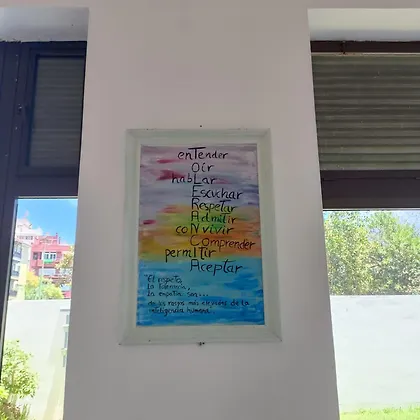 enTender
Oír
habLar
Escuchar
Respetar
Admitir
coNvivir
Comprender
permItir
Aceptar
"El respeto,
la tolerancia,
la empatía son...
de los rasgos más elevados de la
inteligencia humana"